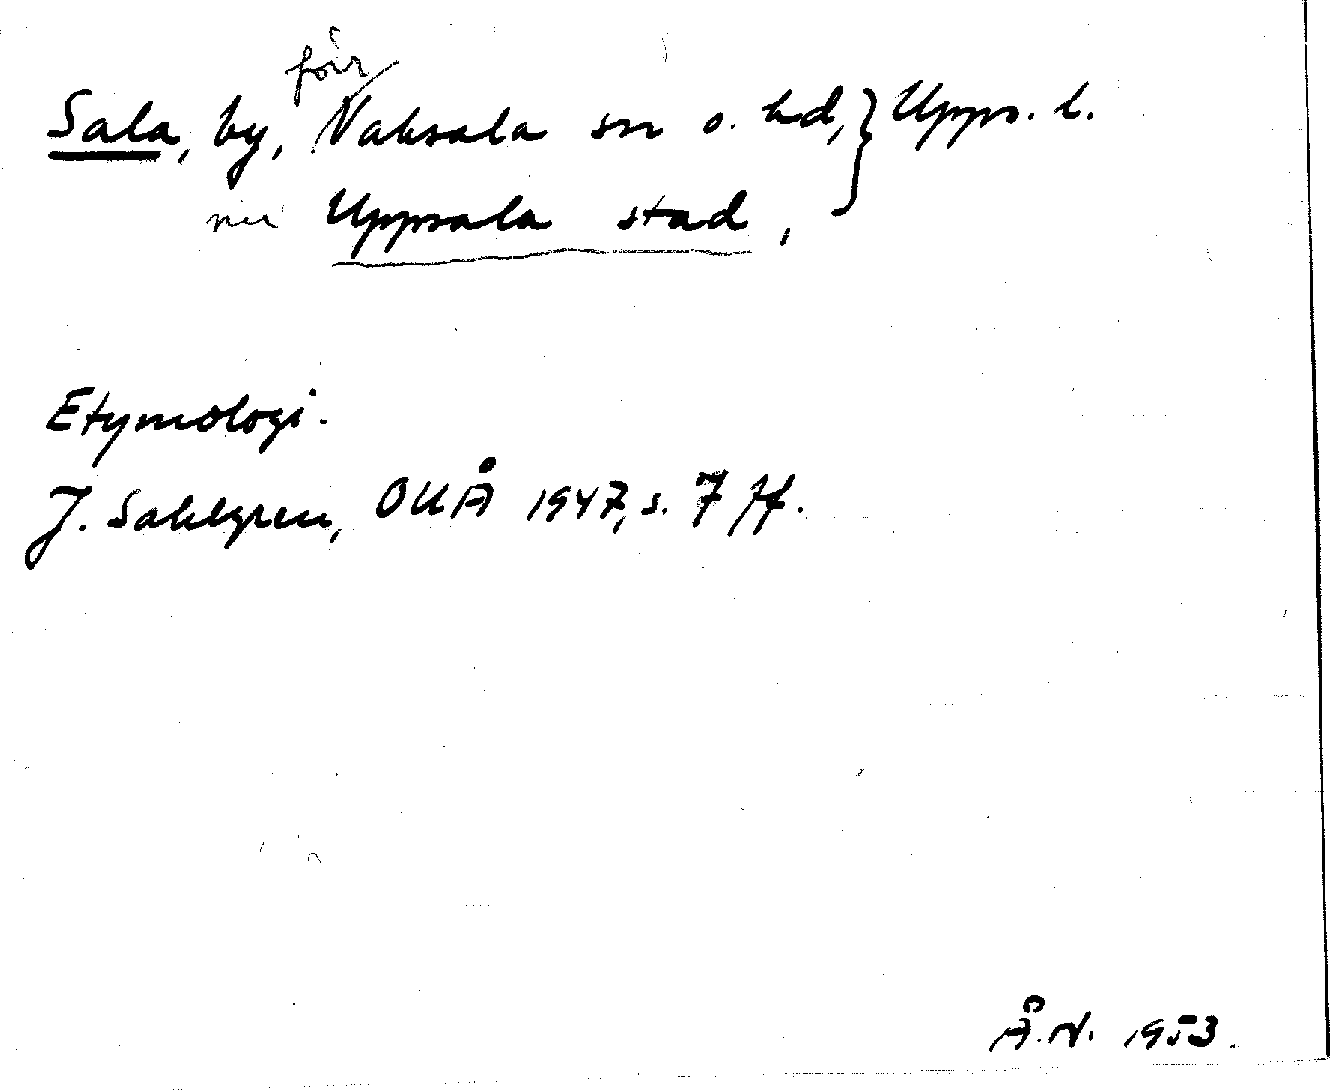 förr
Sala, by, Vaksala sn o. hd, } Upps. l.
nu Uppsala stad,
Etymologi.
J. Sahlgren, OUÅ 1947, s. 7 ff.
Å.N. 1953.